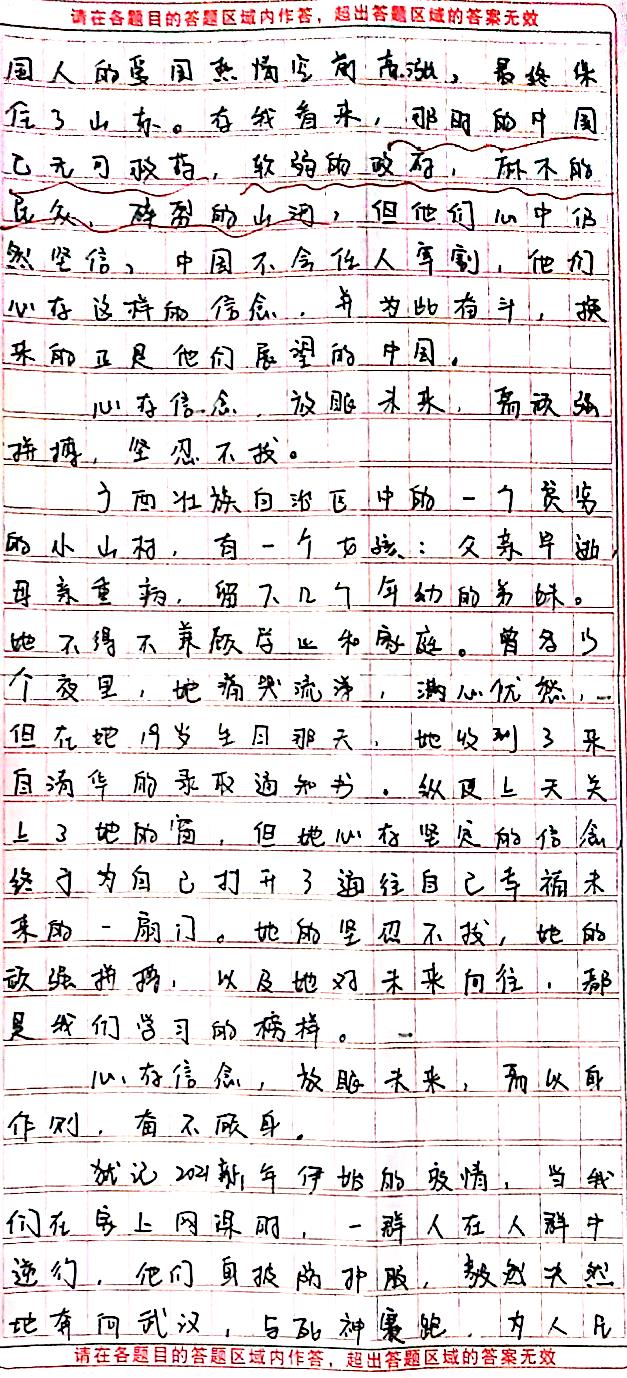 请在各题目的答题区域内作答，超出答题区域的答案无效
国人的爱国热情空前高涨，最终保
住了山东。在我看来，那时的中国
已无可救药，软弱的政府，麻木的
民众，碎裂的山河，但他们心中仍
然坚信，中国不会任人宰割，他们
心存这样的信念，并为此奋斗，换
来的正是他们展望的中国。
心存信念，放眼未来，需顽强
拼搏，坚忍不拔。
广西壮族自治区中的一个贫穷
的小山村，有一个女孩：父亲早逝，
母亲重病，留下几个年幼的弟妹。
她不得不兼顾学业和家庭。曾多少
个夜里，她痛哭流涕，满心忧愁，
但在她19岁生日那天，她收到了来
自清华的录取通知书。纵使上天关
上了她的窗，但她心存坚定的信念，
终于为自己打开了通往自己幸福未
来的一扇门。她的坚忍不拔，她的
顽强拼搏，以及她对未来向往，都
是我们学习的榜样。
心存信念，放眼未来，需以身
作则，奋不顾身。
犹记2021新年伊始的疫情，当我
们在家上网课时，一群人在人群中
逆行，他们身披防护服，毅然决然
地奔向武汉，与死神赛跑，为人民
请在各题目的答题区域内作答，超出答题区域的答案无效